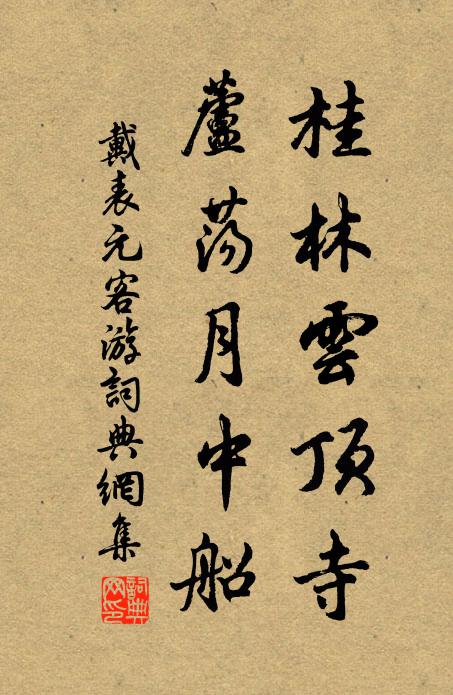 桂林雲頂寺
蘆荡月中船
戴表元客游詞典網集
詞典
网印